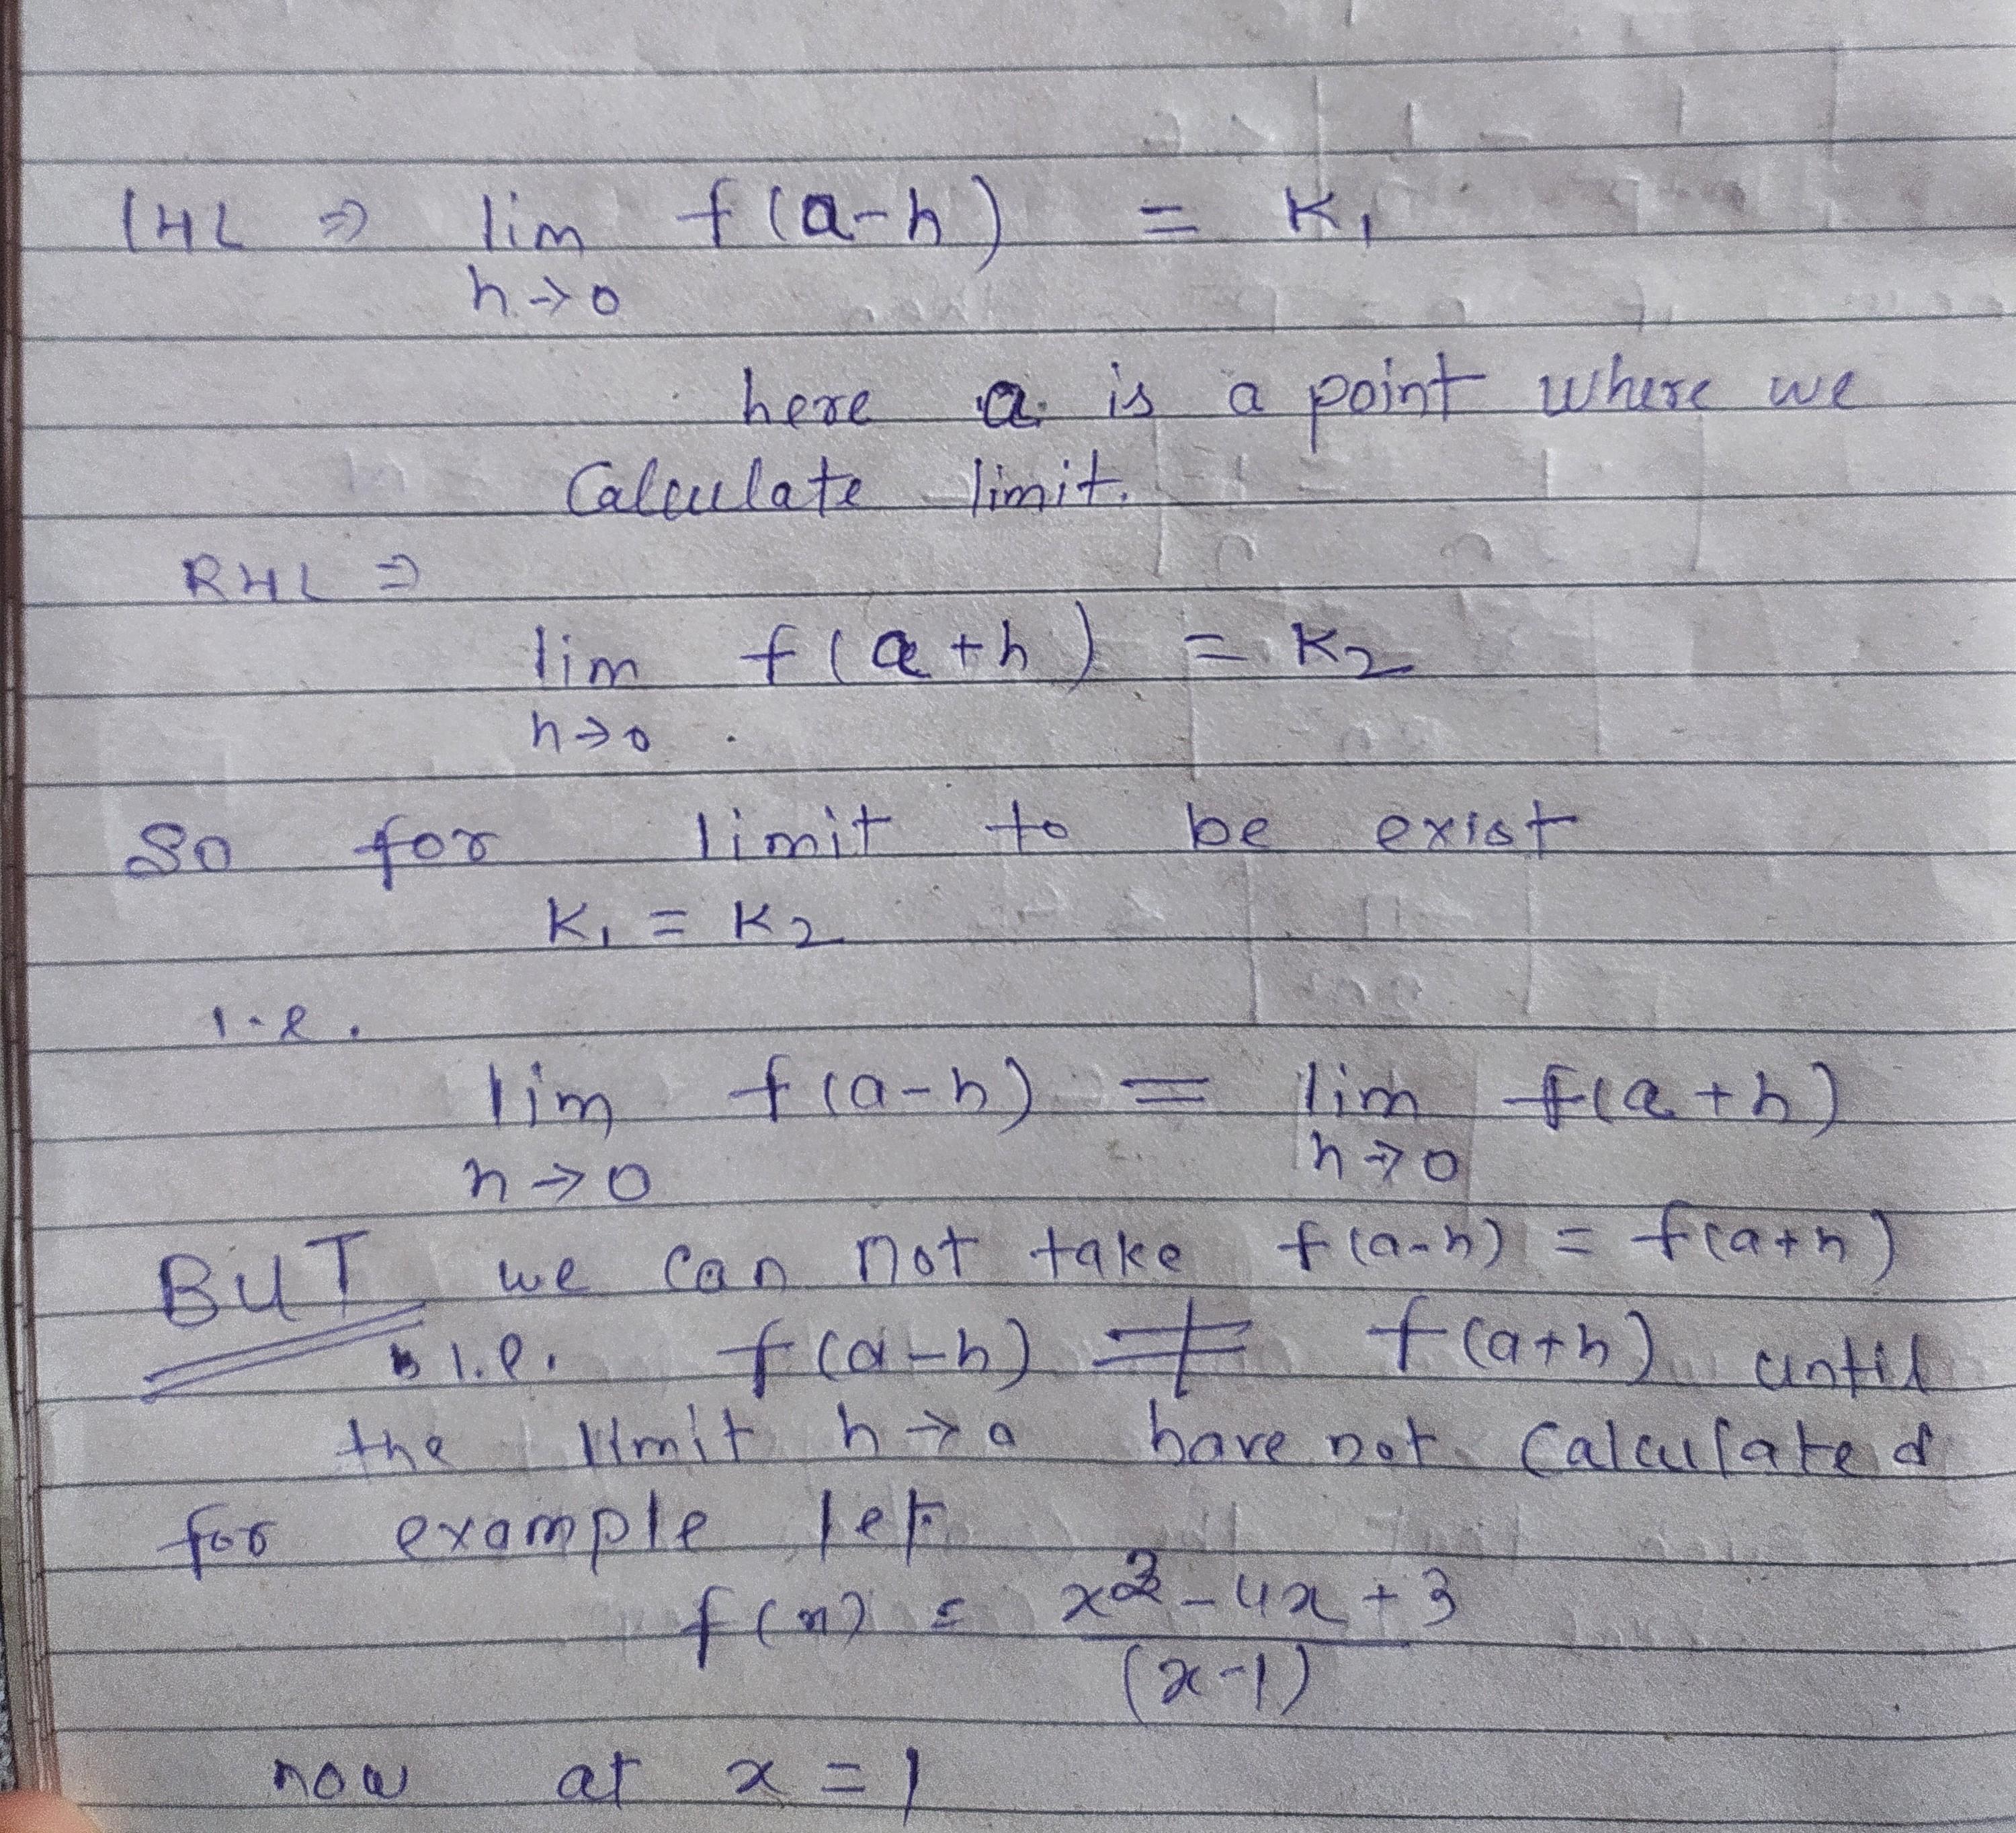 LHL ⇒ lim f(a-h) = K₁
h→0
here a is a point where we
Calculate limit.
RHL ⇒
lim f(a+h) = K₂
h→0
So for limit to be exist
K₁ = K₂
i.e.
lim f(a-h) = lim f(a+h)
h→0 h→0
BUT we can not take f(a-h) = f(a+h)
i.e. f(a-h) ≠ f(a+h) until
the limit h→0 have not Calculated
for example let
f(x) = x²-4x+3
(x-1)
now at x = 1